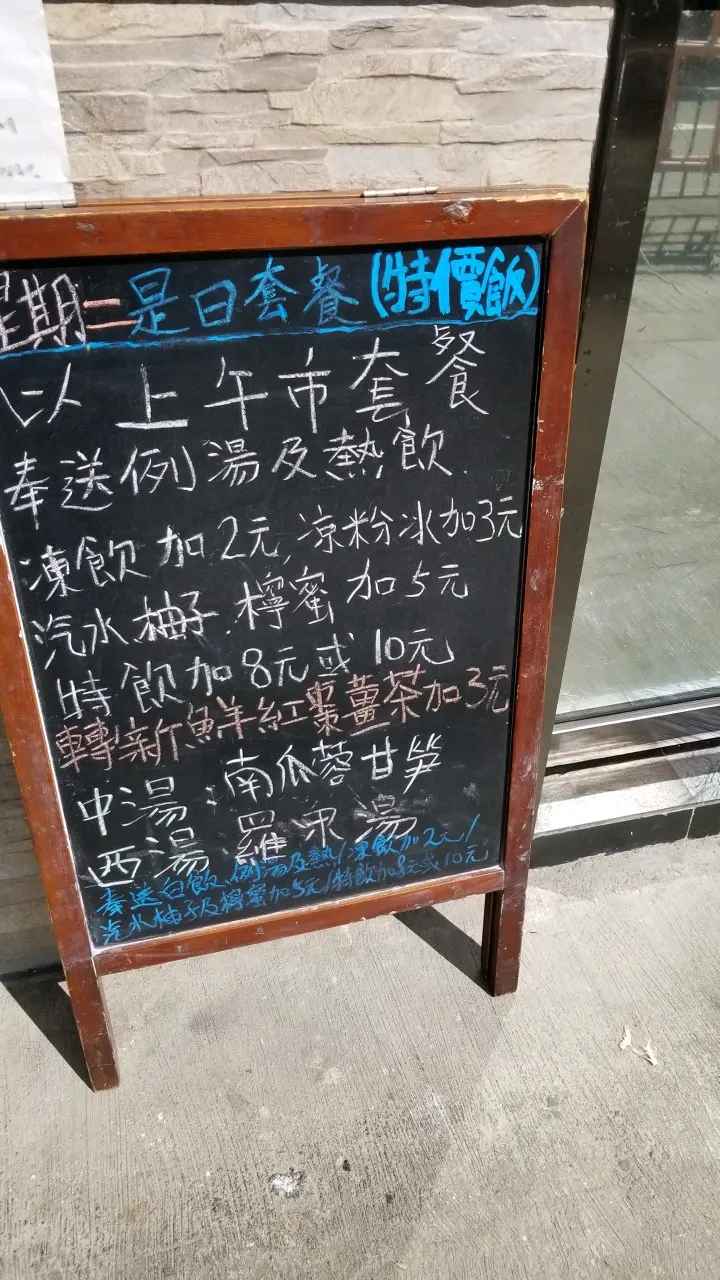 星期二是日套餐(特價飯)
以上午市套餐
奉送例湯及熱飲.
凍飲加2元,凉粉冰加3元
汽水.柚子.檸蜜加5元
特飲加8元或10元
轉新鮮紅棗薑茶加3元
中湯:南瓜蓉甘笋
西湯:羅宋湯
奉送白飯、例湯及熱/凍飲加2元/
汽水柚子及檸蜜加5元/特飲加8元或10元